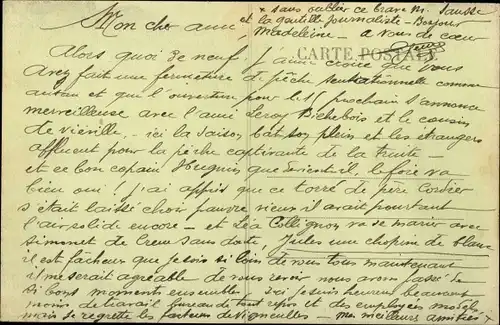 + sans oublier ce brave Mr. Sausse
Mon cher ami et la gentille journaliste - Bonjour
Madeleine - à vous de cœur
CARTE POSTALE
Alors quoi de neuf, j'aime croire que vous
avez fait une fermeture de pêche sensationnelle comme
antan et que l'ouverture pour le 15 prochain s'annonce
merveilleuse avec l'ami Leroy Bichebois et le cousin
de Viéville, ici la saison bat son plein et les étrangers
affluent pour la pêche captivante de la truite -
et ce bon copain Huguin que devient-il, le foie va
bien oui ! J'ai appris que ce torré de père Cordier
s'était laissé choir pauvre vieux il avait pourtant
l'air solide encore - et Léa Collignon va se marier avec
Simonet de Creue sans doute, Jules une chopine de blanc
il est fâcheux que je sois si loin de vous tous maintenant
il me serait agréable de vous revoir nous avons passé de
si bons moments ensemble - ici je suis heureux beaucoup
moins de travail bureau de tout repos et des employés modèles
mais je regrette les facteurs de Vigneulles - mes meilleurs amitiés +